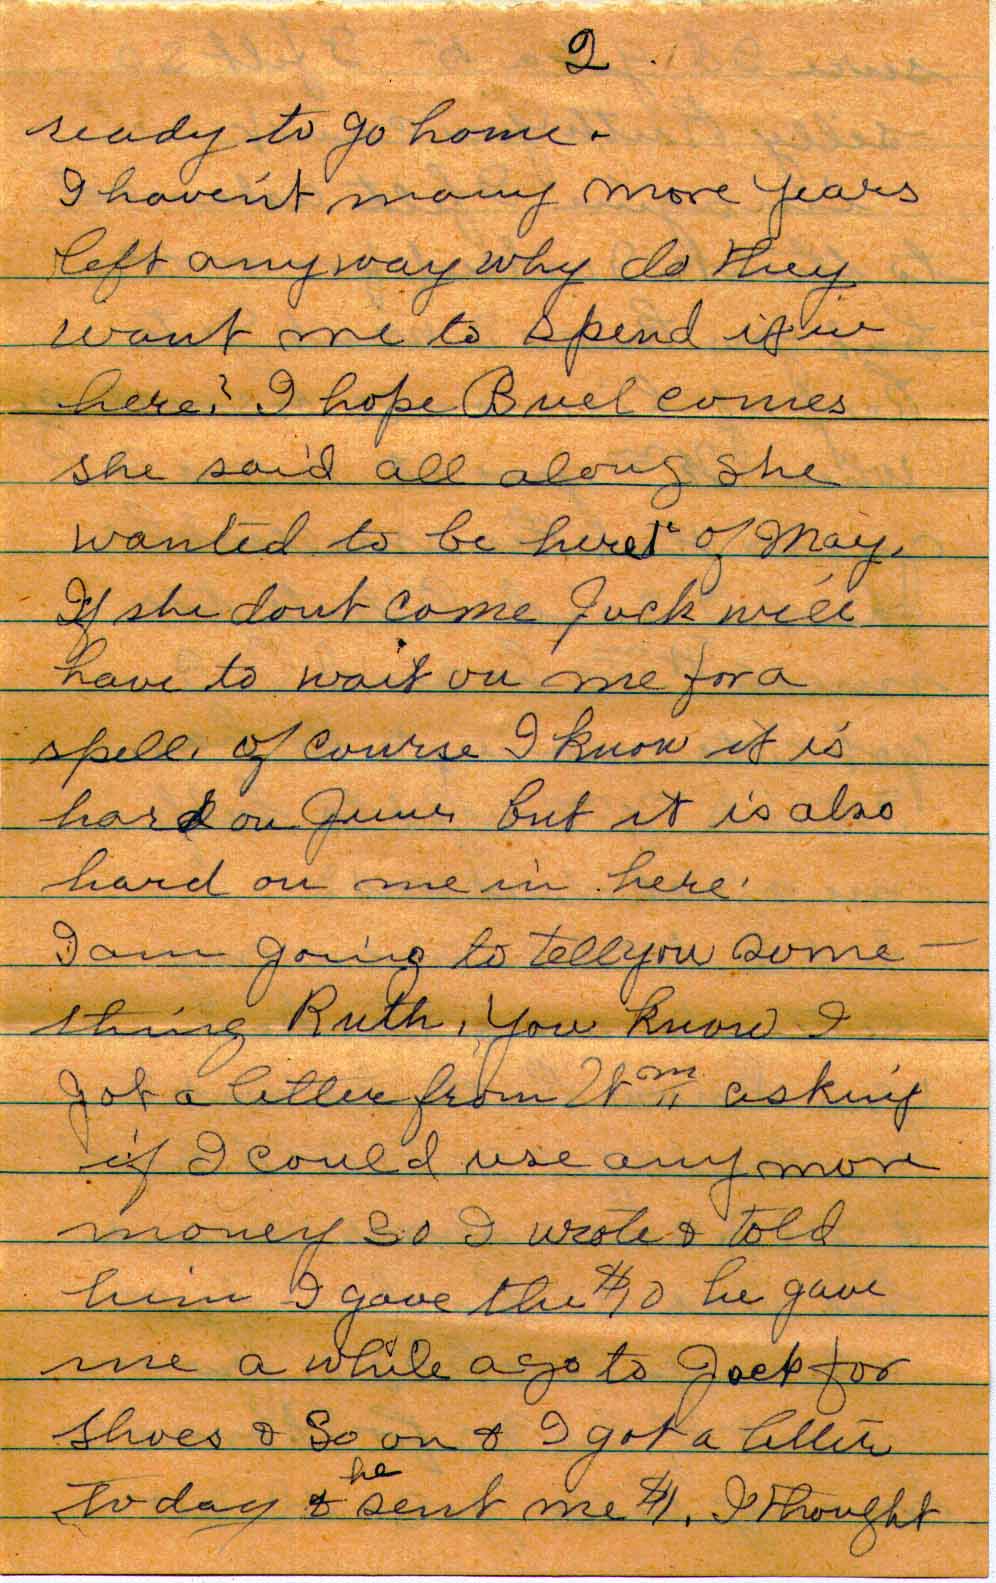 2.
ready to go home.
I haven't many more years
left anyway why do they
want me to spend it in
here? I hope Buel comes
she said all along she
wanted to be here 1st of May.
If she dont come Jack will
have to wait on me for a
spell. Of course I know it is
hard on June, but it is also
hard on me in here.
I am going to tell you some-
thing Ruth, You know I
got a letter from Wm asking
if I could use any more
money so I wrote & told
him I gave the $10 he gave
me a while ago to Jack for
shoes & so on & I got a letter
today & he sent me $1. I thought